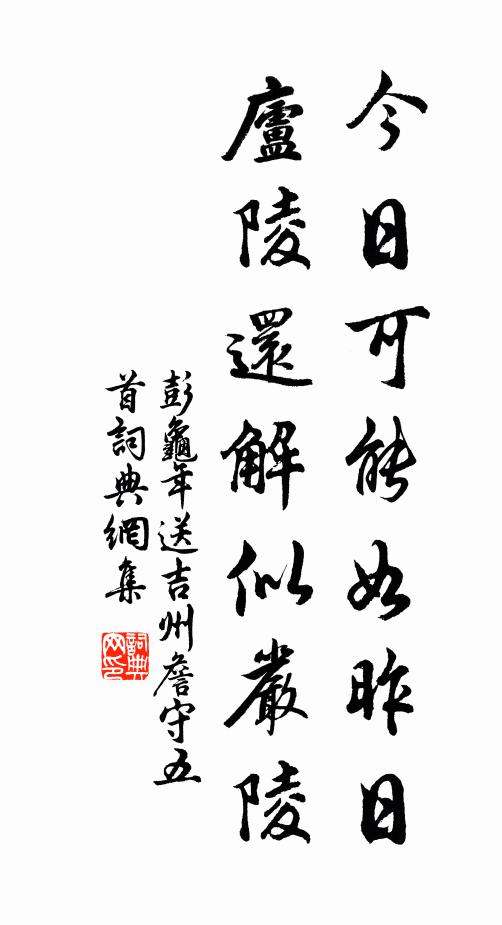 今日可能如昨日
廬陵還解似嚴陵
彭龜年送吉州詹守五
首詞典網集
詞典網印